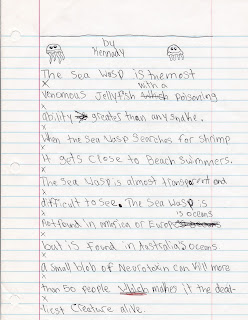 by
Kennedy
The Sea Wasp is the most
with a
venomous Jellyfish which poisoning
ability greater than any snake.
When the Sea Wasp Searches for Shrimp
it gets close to Beach Swimmers.
The Sea Wasp is almost transparent and
difficult to See. The Sea Wasp is
is oceans
not found in America or Europe
but is found in Australia's oceans
a small blob of Neurotoxin can kill more
than 50 people which makes it the dead-
liest Creature alive.